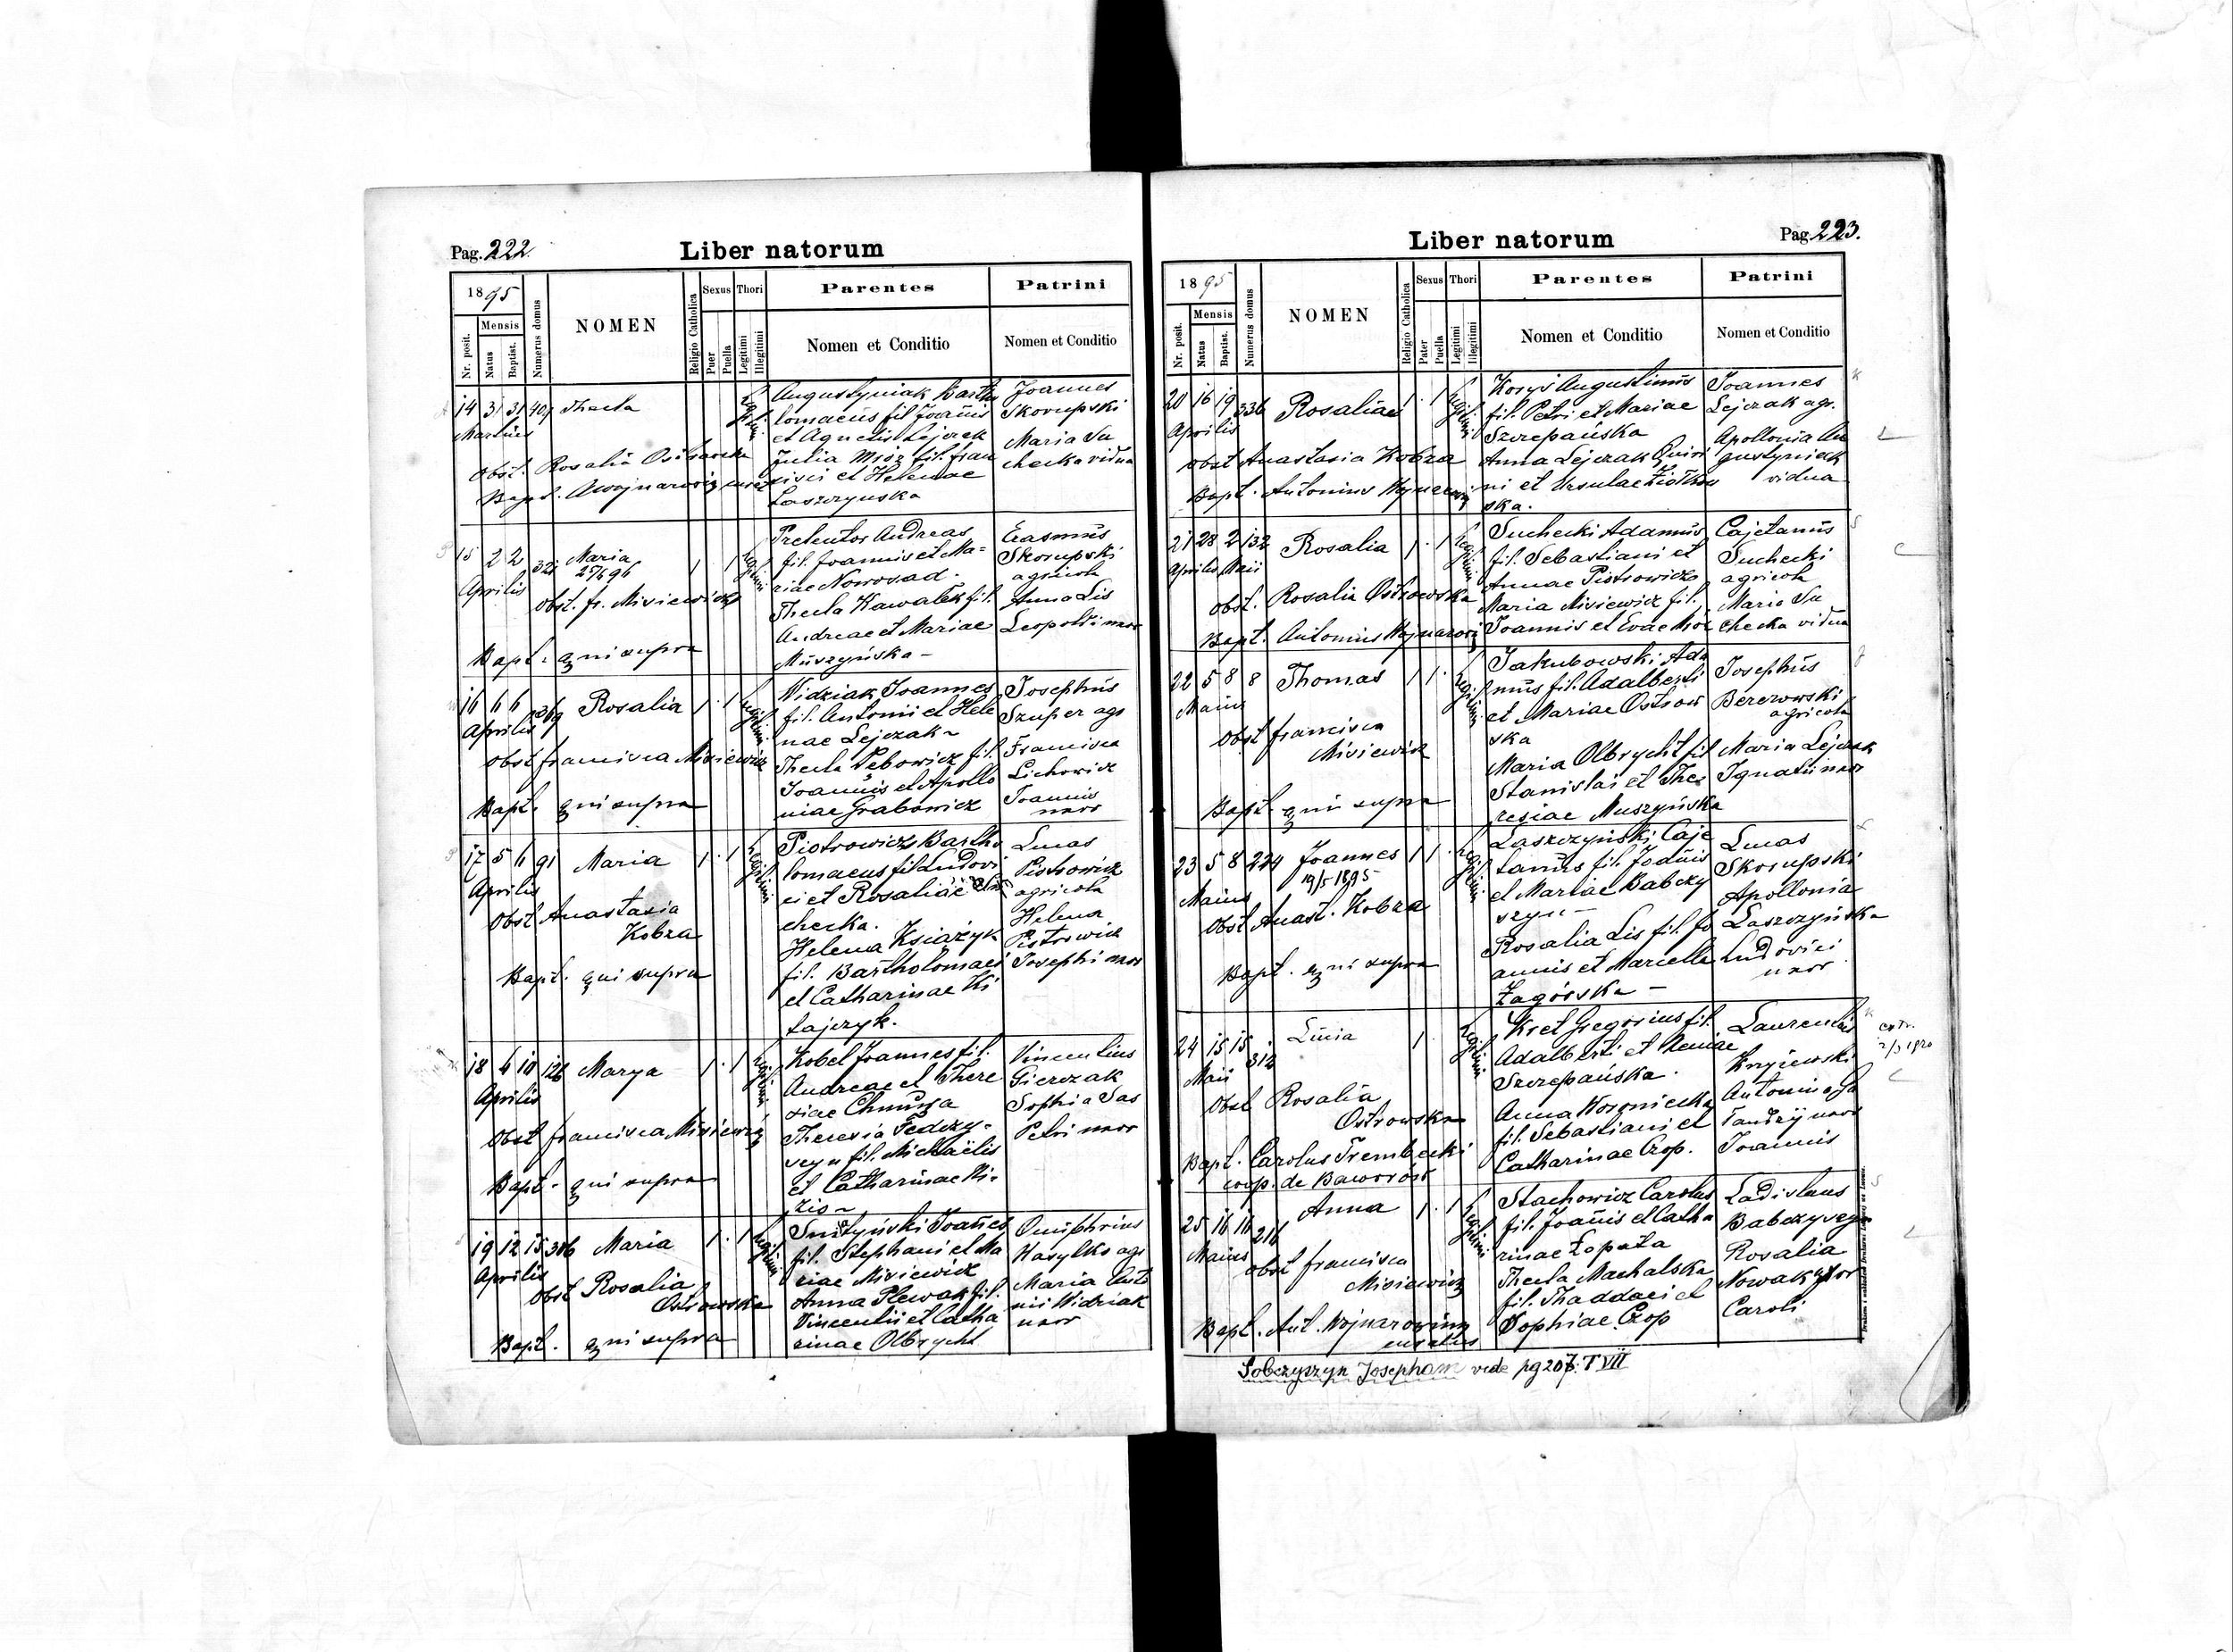 Pag. 222.
Liber natorum
1895
Nr. posit.
Mensis
Natus
Baptist.
Numerus domus
NOMEN
Religio Catholica
Sexus
Puer
Puella
Thori
Legitimi
Illegitimi
Parentes
Nomen et Conditio
Patrini
Nomen et Conditio
14 31 31 401 Thecla
Martius
Obst. Rosalia Ostrowska
Bapt.
Augustyniak Bartho
lomaeus fil. Joannis
et Agnetis Lejczak
Julia Mróz fil. Fran
cisci et Helenae
Laszczynska
Joannes
Skorupski
Maria Su
checka vidua
15 2 2 321 Maria 1 1
27/6 96
Aprilis
Obst. fr. Misiewicz
Bapt. qui supra
Andreas
fil. Joannis et Ma=
riae Nowosad.
Thecla Kawałek fil.
Andreae et Mariae
Muszyńska -
Erasmus
Skorupski
agricola
Anna Lis
Leopoldi uxor
16 6 6 369 Rosalia 1 1
Aprilis
Obst Francisca Misiewicz
Bapt. qui supra
Widziak Joannes
fil. Antonii et Hele
nae Lejczak
Thecla fil.
Joannis et Apollo
niae Grabowicz
Josephus
Szuper agr
Francisca
Lichowicz
Joannis
uxor
17 5 6 91 Maria 1 1
Aprilis
Obst Anastasia
Kobza
Bapt. qui supra
Piotrowicz Bartho
lomaeus fil Ludovi
ci et Rosaliae Su
checka.
Helena Ksiażyk
fil. Bartholomaei
et Catharinae Ki
tajczyk.
Lucas
Piotrowicz
agricola
Helena
Piotrowicz
Josephi uxor
18 6 10 126 Marya 1 1
Aprilis
Obst Francisca Misiewicz
Bapt. qui supra
Kobel Joannes fil.
Andreae et There
siae
Theresia Fedczy=
szyn fil. Michaëlis
et Catharinae Ki=
zio
Vincentius
Gierczak
Sophia Sas
Petri uxor
19 12 15 386 Maria 1 1
Aprilis
Obst Rosalia
Ostrowska
Bapt. qui supra
Joannes
fil. Stephani et Ma
riae Misiewicz
Anna Plewak fil.
Vincentii et Catha
rinae Olbrycht
Onuphrius
Hasylko agr
Maria Anto
nii Widziak
uxor
Pag. 223.
Liber natorum
1895
Nr. posit.
Mensis
Natus
Baptist.
Numerus domus
NOMEN
Religio Catholica
Sexus
Pater
Puella
Thori
Legitimi
Illegitimi
Parentes
Nomen et Conditio
Patrini
Nomen et Conditio
20 16 19 336 Rosaliae 1 1
Aprilis
Obst Anastasia Kobza
Bapt. Antonius
Koryś Augustinus
fil. Petri et Mariae
Szczepańska
Anna Lejczak Quiri
ni et Ursulae Ziółkow
ska.
Joannes
Lejczak agr.
Apollonia Au
gustyniak
vidua
21 28 2 132 Rosalia 1 1
Aprilis Maii
Obst. Rosalia Ostrowska
Bapt. Antonius
Suchecki Adamus
fil. Sebastiani et
Annae Piotrowicz
Maria Misiewicz fil.
Joannis et Evae Mróz
Cajetanus
Suchecki
agricola
Maria Su
checka vidua
22 5 8 8 Thomas 1 1
Maius
Obst Francisca
Misiewicz
Bapt. qui supra
Jakubowski Ada
mus fil. Adalberti
et Mariae Ostrow
ska
Maria Olbrycht fil
Stanislai et The
resiae Muszyńska
Josephus
Berezowski
agricola
Maria Lejczak
Ignatii uxor
23 5 8 224 Joannes 1 1
19/5 1895
Maius
Obst Anast. Kobza
Bapt. qui supra
Laszczyński Caje
tanus fil. Joannis
et Mariae Babczy
szyn -
Rosalia Lis fil. Jo
annis et Marcellae
Zagórska -
Lucas
Skorupski
Apollonia
Laszczyńska
Ludovici
uxor
24 15 15 312 Lucia 1
Maii
Obst Rosalia
Ostrowska
Bapt. Carolus Trembecki
coop. de Baworów
Kret Gregorius fil.
Adalberti et
Szczepańska.
Anna
fil. Sebastiani et
Catharinae Czop.
Laurentius
Antonina
uxor
Joannis
25 16 16 216 Anna 1 1
Maius
Obst Francisca
Misiewicz
Bapt. Ant.
Stachowicz Carolus
fil. Joannis et Catha
rinae Łopata
Thecla Machalska
fil. Thaddaei et
Sophiae Czop
Ladislaus
Babczyszyn
Rosalia
Nowak uxor
Caroli
Sobczyszyn Josepham vide pg 207. T VII